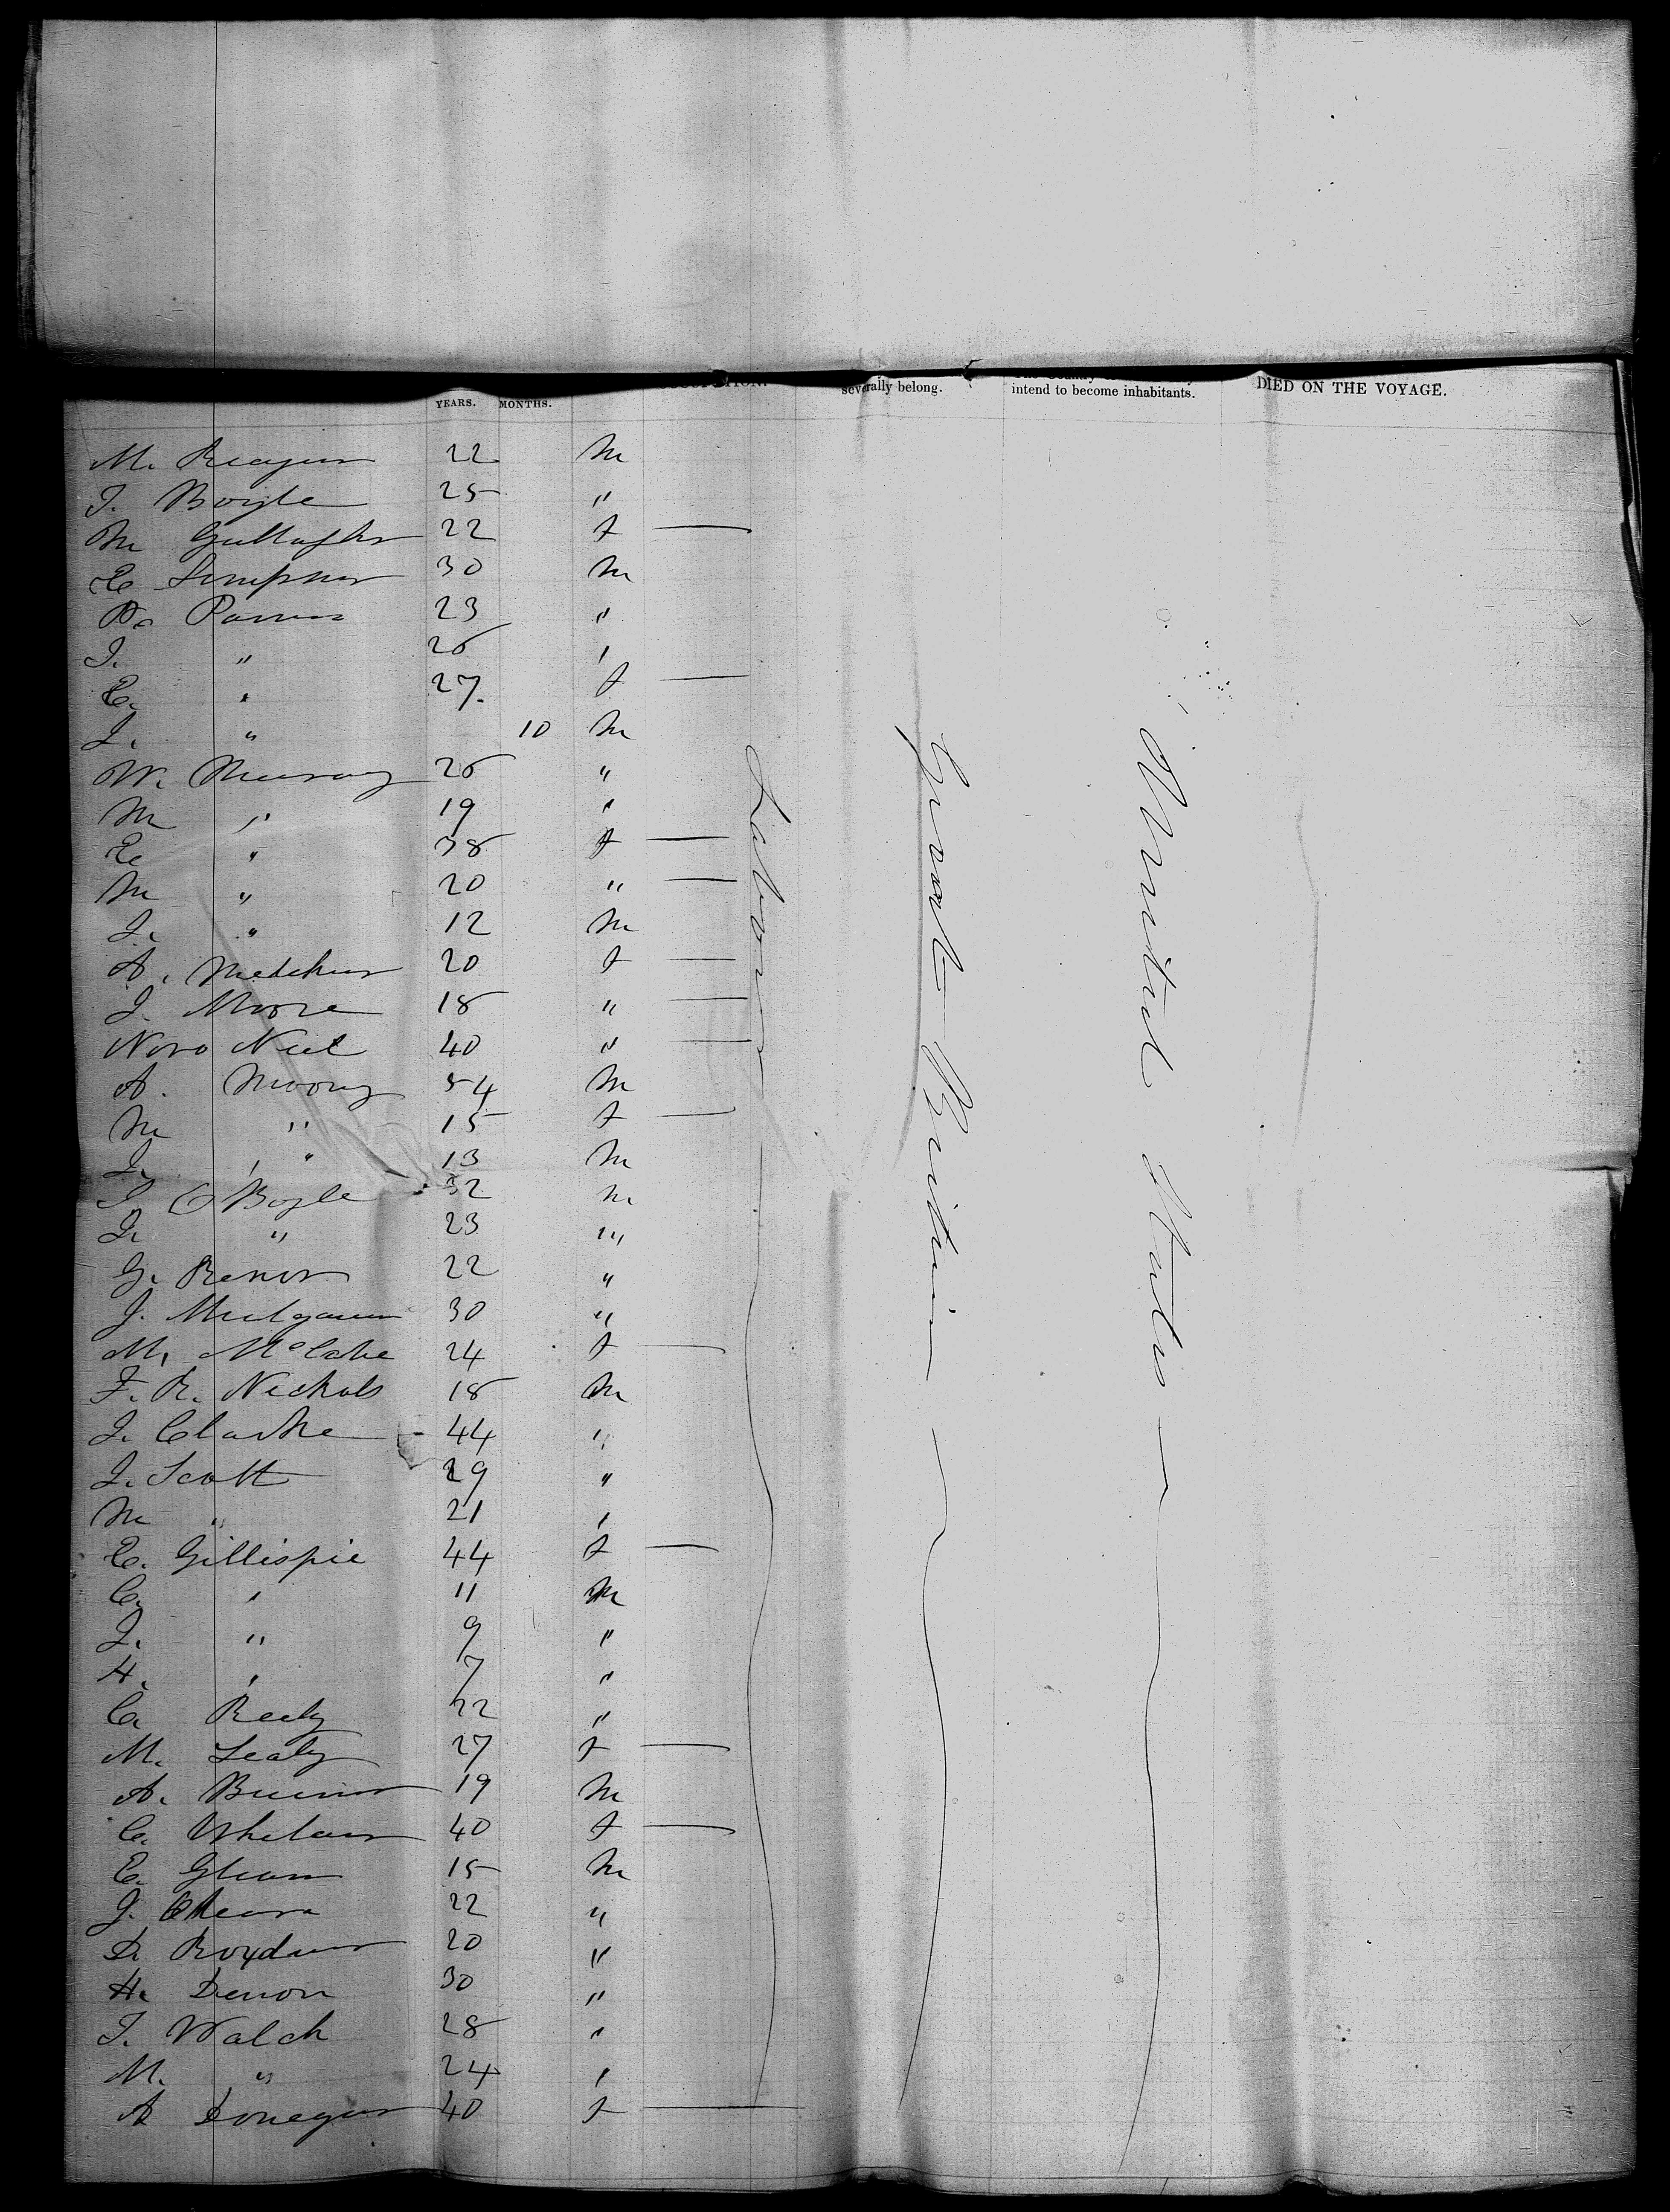 severally belong. intend to become inhabitants. DIED ON THE VOYAGE.
YEARS. MONTHS.
M. Reagan 22 m
J. Boyle 25 "
M Gallagher 22 f —
E Simpson 30 m
23 "
J. " 26 "
E. " 27 f —
J. " 10 m
W. Murray 26 "
M " 19 "
E " 38 f —
M " 20 " —
J. " 12 m
A. 20 f —
J. Moore 18 " —
Nora Neil 40 " —
A. Moony 54 m
M " 15 f —
J. " 13 m
J O'Boyle 32 m
J. " 23 "
G. 22 "
J. 30 "
M. McCabe 24 f —
F. R. Nichols 18 m
J. Clarke 44 "
J. Scott 29 "
M " 21 "
E. Gillispie 44 f —
C. " 11 m
J. " 9 "
H. " 7 "
C. Reely 22 "
M. Lealy 27 f —
A. 19 m
C. Whelan 40 f —
E. 15 m
J. 22 "
D. 20 "
H. Denon 30 "
J. Walch 28 "
M. " 24 "
A Donegan 40 f —
Labourer
Great Britain
United States